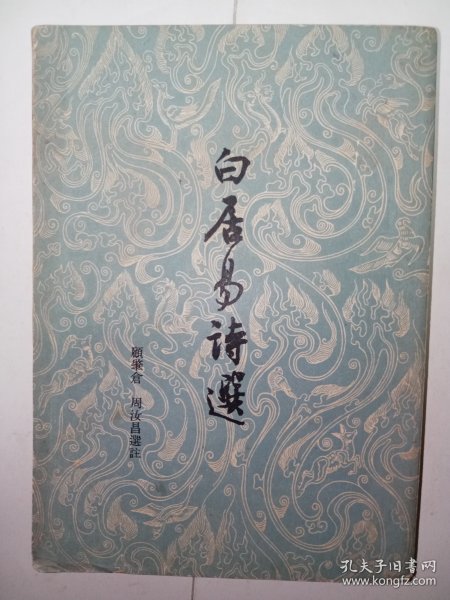 白居易詩選
顧肇倉 周汝昌選註
孔夫子旧书网
www.kongfz.com